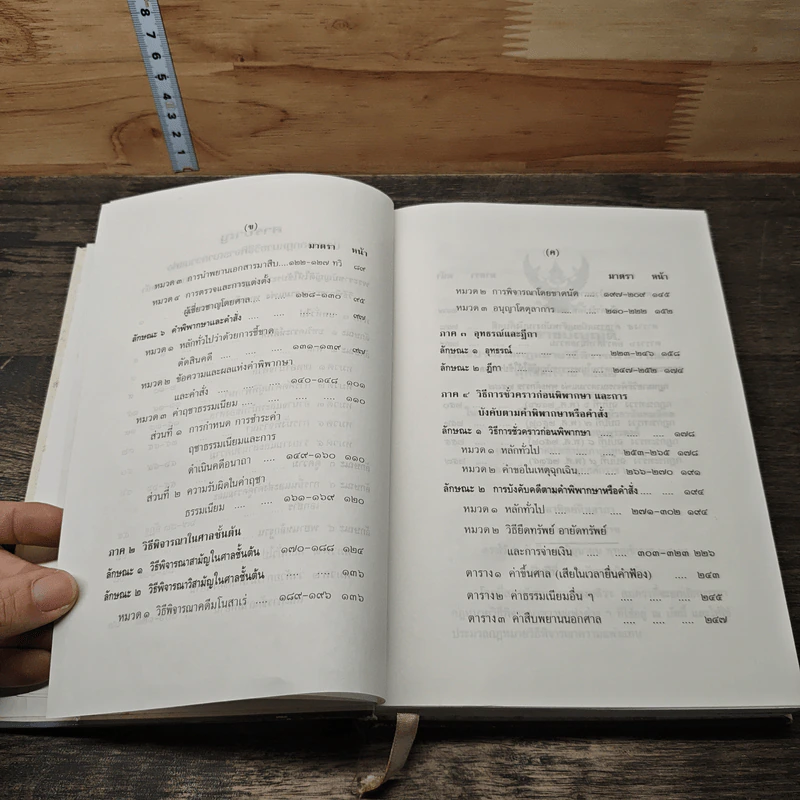 8
7
6
5
4
3
2
1
(ข)
มาตรา หน้า
หมวด ๓ การนำพยานเอกสารมาสืบ....๑๒๒-๑๒๗ ทวิ ๘๙
หมวด ๔ การตรวจและการแต่งตั้ง
ผู้เชี่ยวชาญโดยศาล .... ๑๒๘-๑๓๐ ๙๕
ลักษณะ ๖ คำพิพากษาและคำสั่ง .... .... ๙๗
หมวด ๑ หลักทั่วไปว่าด้วยการชี้ขาด
ตัดสินคดี .... .... ๑๓๑-๑๓๙ ๙๗
หมวด ๒ ข้อความและผลแห่งคำพิพากษา
และคำสั่ง .... .... ๑๔๐-๑๔๘ ๑๐๑
หมวด ๓ ค่าฤชาธรรมเนียม .... .... .... .... ๑๑๐
ส่วนที่ ๑ การกำหนด การชำระค่า
ฤชาธรรมเนียมและการ
ดำเนินคดีอนาถา .... ๑๔๙-๑๖๐ ๑๑๐
ส่วนที่ ๒ ความรับผิดในค่าฤชา
ธรรมเนียม .... .... ๑๖๑-๑๖๙ ๑๒๐
ภาค ๒ วิธีพิจารณาในศาลชั้นต้น
ลักษณะ ๑ วิธีพิจารณาสามัญในศาลชั้นต้น ๑๗๐-๑๘๘ ๑๒๔
ลักษณะ ๒ วิธีพิจารณาวิสามัญในศาลชั้นต้น .... .... ๑๓๖
หมวด ๑ วิธีพิจารณาคดีมโนสาเร่ .... ๑๘๙-๑๙๖ ๑๓๖
(ค)
มาตรา หน้า
หมวด ๒ การพิจารณาโดยขาดนัด .... ๑๙๗-๒๐๙ ๑๔๕
หมวด ๓ อนุญาโตตุลาการ .... .... ๒๑๐-๒๒๒ ๑๕๒
ภาค ๓ อุทธรณ์และฎีกา
ลักษณะ ๑ อุทธรณ์ .... .... .... ๒๒๓-๒๔๖ ๑๕๘
ลักษณะ ๒ ฎีกา .... .... .... ๒๔๗-๒๕๒ ๑๗๔
ภาค ๔ วิธีการชั่วคราวก่อนพิพากษา และการ
บังคับตามคำพิพากษาหรือคำสั่ง
ลักษณะ ๑ วิธีการชั่วคราวก่อนพิพากษา .... .... .... ๑๗๘
หมวด ๑ หลักทั่วไป .... .... ๒๕๓-๒๖๕ ๑๗๘
หมวด ๒ คำขอในเหตุฉุกเฉิน .... ๒๖๖-๒๗๐ ๑๙๑
ลักษณะ ๒ การบังคับคดีตามคำพิพากษาหรือคำสั่ง .... .... ๑๙๔
หมวด ๑ หลักทั่วไป .... .... ๒๗๑-๓๐๒ ๑๙๔
หมวด ๒ วิธียึดทรัพย์ อายัดทรัพย์
และการจ่ายเงิน .... .... ๓๐๓-๓๒๓ ๒๒๖
ตาราง ๑ ค่าขึ้นศาล (เสียในเวลายื่นคำฟ้อง) .... ๒๔๓
ตาราง ๒ ค่าธรรมเนียมอื่น ๆ .... .... .... ๒๔๕
ตาราง ๓ ค่าสืบพยานนอกศาล .... .... .... ๒๔๗